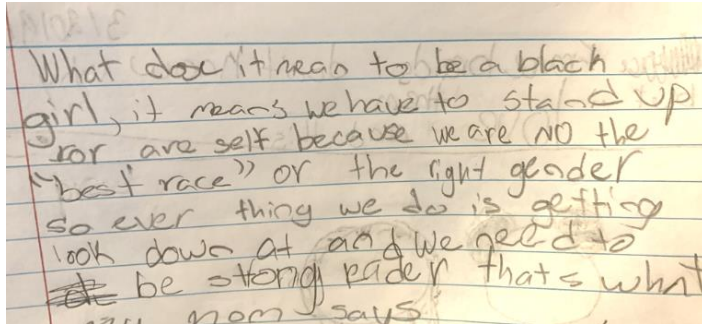 What dose it mean to be a blach
girl, it means we have to stand up
for are self because we are NO the
"best race" or the right gender
so ever thing we do is getting
look down at and we need to
be strong thats what
mom says